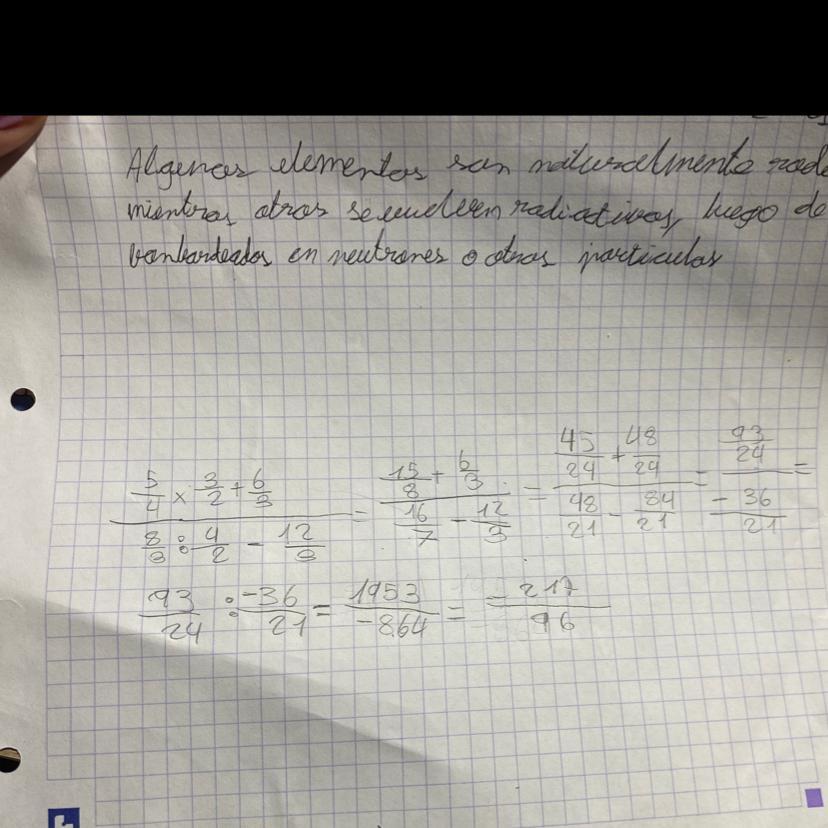 Algenos elementos son naturalmente rade
mientras otros se vuelven radiativos, luego de
bonbardeados en neutrones o otras particulas
5/4 x 3/2 + 6/3 / 8/3 : 4/2 - 12/3 = 15/8 + 6/3 / 16/7 - 12/3 = 45/24 + 48/24 / 48/21 - 84/21 = 93/24 / -36/21 =
93/24 : -36/21 = 1953/-864 = -217/96